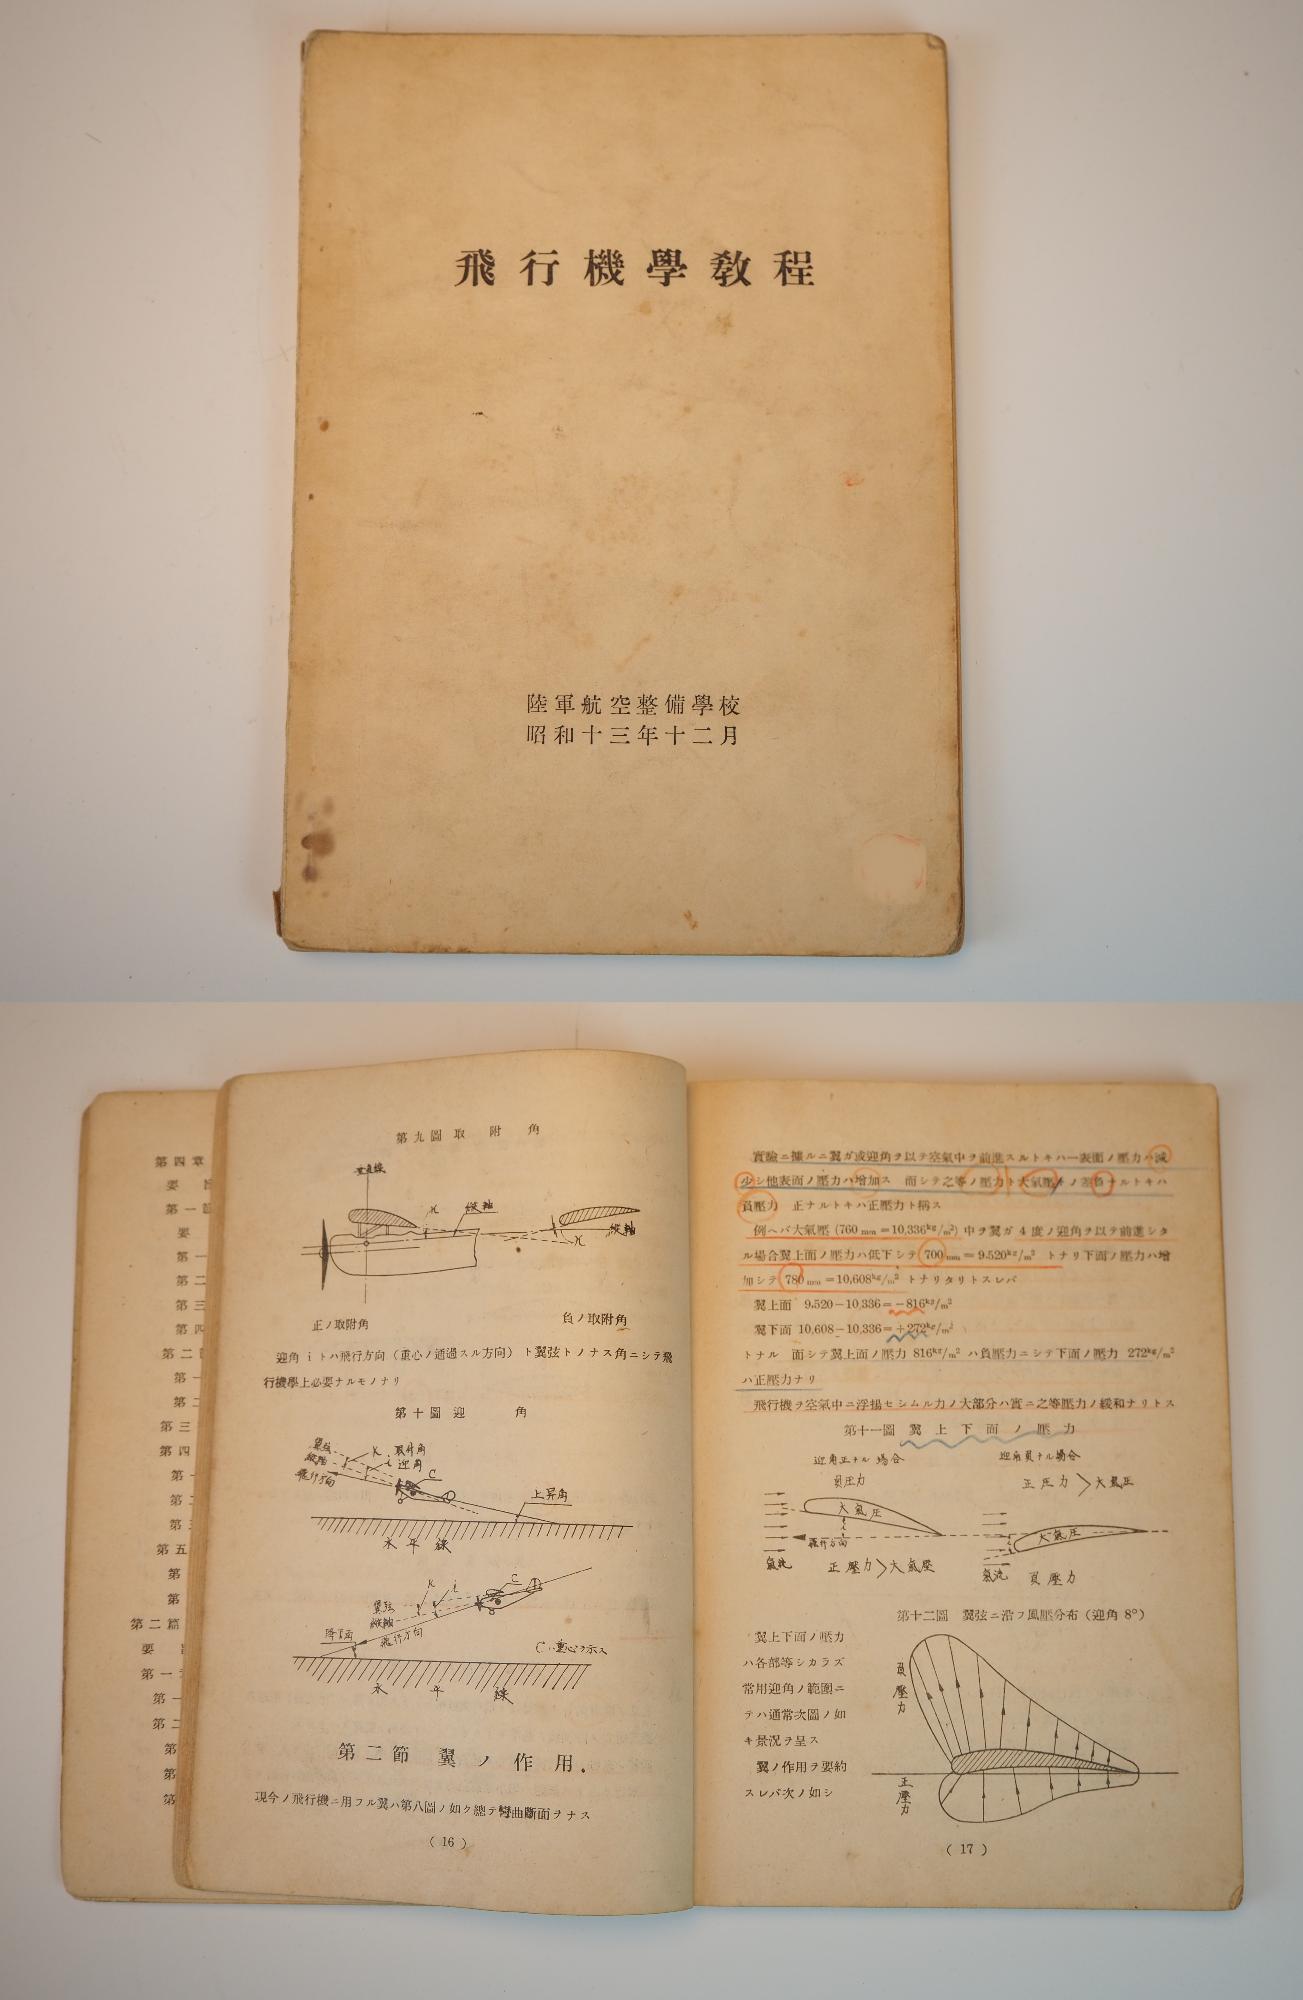 飛行機學教程
陸軍航空整備學校
昭和十三年十二月
第四章
要
第一節
要
第一
第二
第三
第四
第二節
第一
第二
第三
第四
第一
第二
第三
第五
第
第
第二篇
要
第一
第一
第二
第
第
第
第九圖 取附角
垂直線
縦軸
縦軸
正ノ取附角
負ノ取附角
迎角 i トハ飛行方向(重心ノ通過スル方向)ト翼弦トノナス角ニシテ飛
行機學上必要ナルモノナリ
第十圖 迎角
翼弦
縦軸
飛行方向
K 取付角
i 迎角
C
上昇角
水平線
K
i
C
翼弦
縦軸
飛行方向
降下角
Cハ重心ヲ示ス
水平線
第二節 翼ノ作用.
現今ノ飛行機ニ用フル翼ハ第八圖ノ如ク總テ彎曲斷面ヲナス
( 16 )
實驗ニ據ルニ翼ガ或迎角ヲ以テ空氣中ヲ前進スルトキハ一表面ノ壓力ハ減
少シ他表面ノ壓力ハ増加ス 而シテ之等ノ壓力ト大氣壓トノ差負ナルトキハ
負壓力 正ナルトキハ正壓力ト稱ス
例ヘバ大氣壓 (760 mm = 10,336kg/m²) 中ヲ翼ガ 4 度ノ迎角ヲ以テ前進シタ
ル場合翼上面ノ壓力ハ低下シテ 700 mm = 9.520kg/m² トナリ下面ノ壓力ハ増
加シテ 780 mm = 10,608kg/m² トナリタリトスレバ
翼上面 9.520−10,336=−816kg/m²
翼下面 10,608−10,336=+272kg/m²
トナル 而シテ翼上面ノ壓力 816kg/m² ハ負壓力ニシテ下面ノ壓力 272kg/m²
ハ正壓力ナリ
飛行機ヲ空氣中ニ浮揚セシムル力ノ大部分ハ實ニ之等壓力ノ緩和ナリトス
第十一圖 翼上下面ノ壓力
迎角正ナル場合
負圧力
大氣圧
飛行方向
氣流
正壓力>大氣壓
迎角負ナル場合
正圧力>大氣圧
大氣圧
氣流
負壓力
第十二圖 翼弦ニ沿フ風壓分布 (迎角 8°)
翼上下面ノ壓力
ハ各部等シカラズ
常用迎角ノ範圍ニ
テハ通常次圖ノ如
キ景況ヲ呈ス
翼ノ作用ヲ要約
スレバ次ノ如シ
負壓力
正壓力
( 17 )